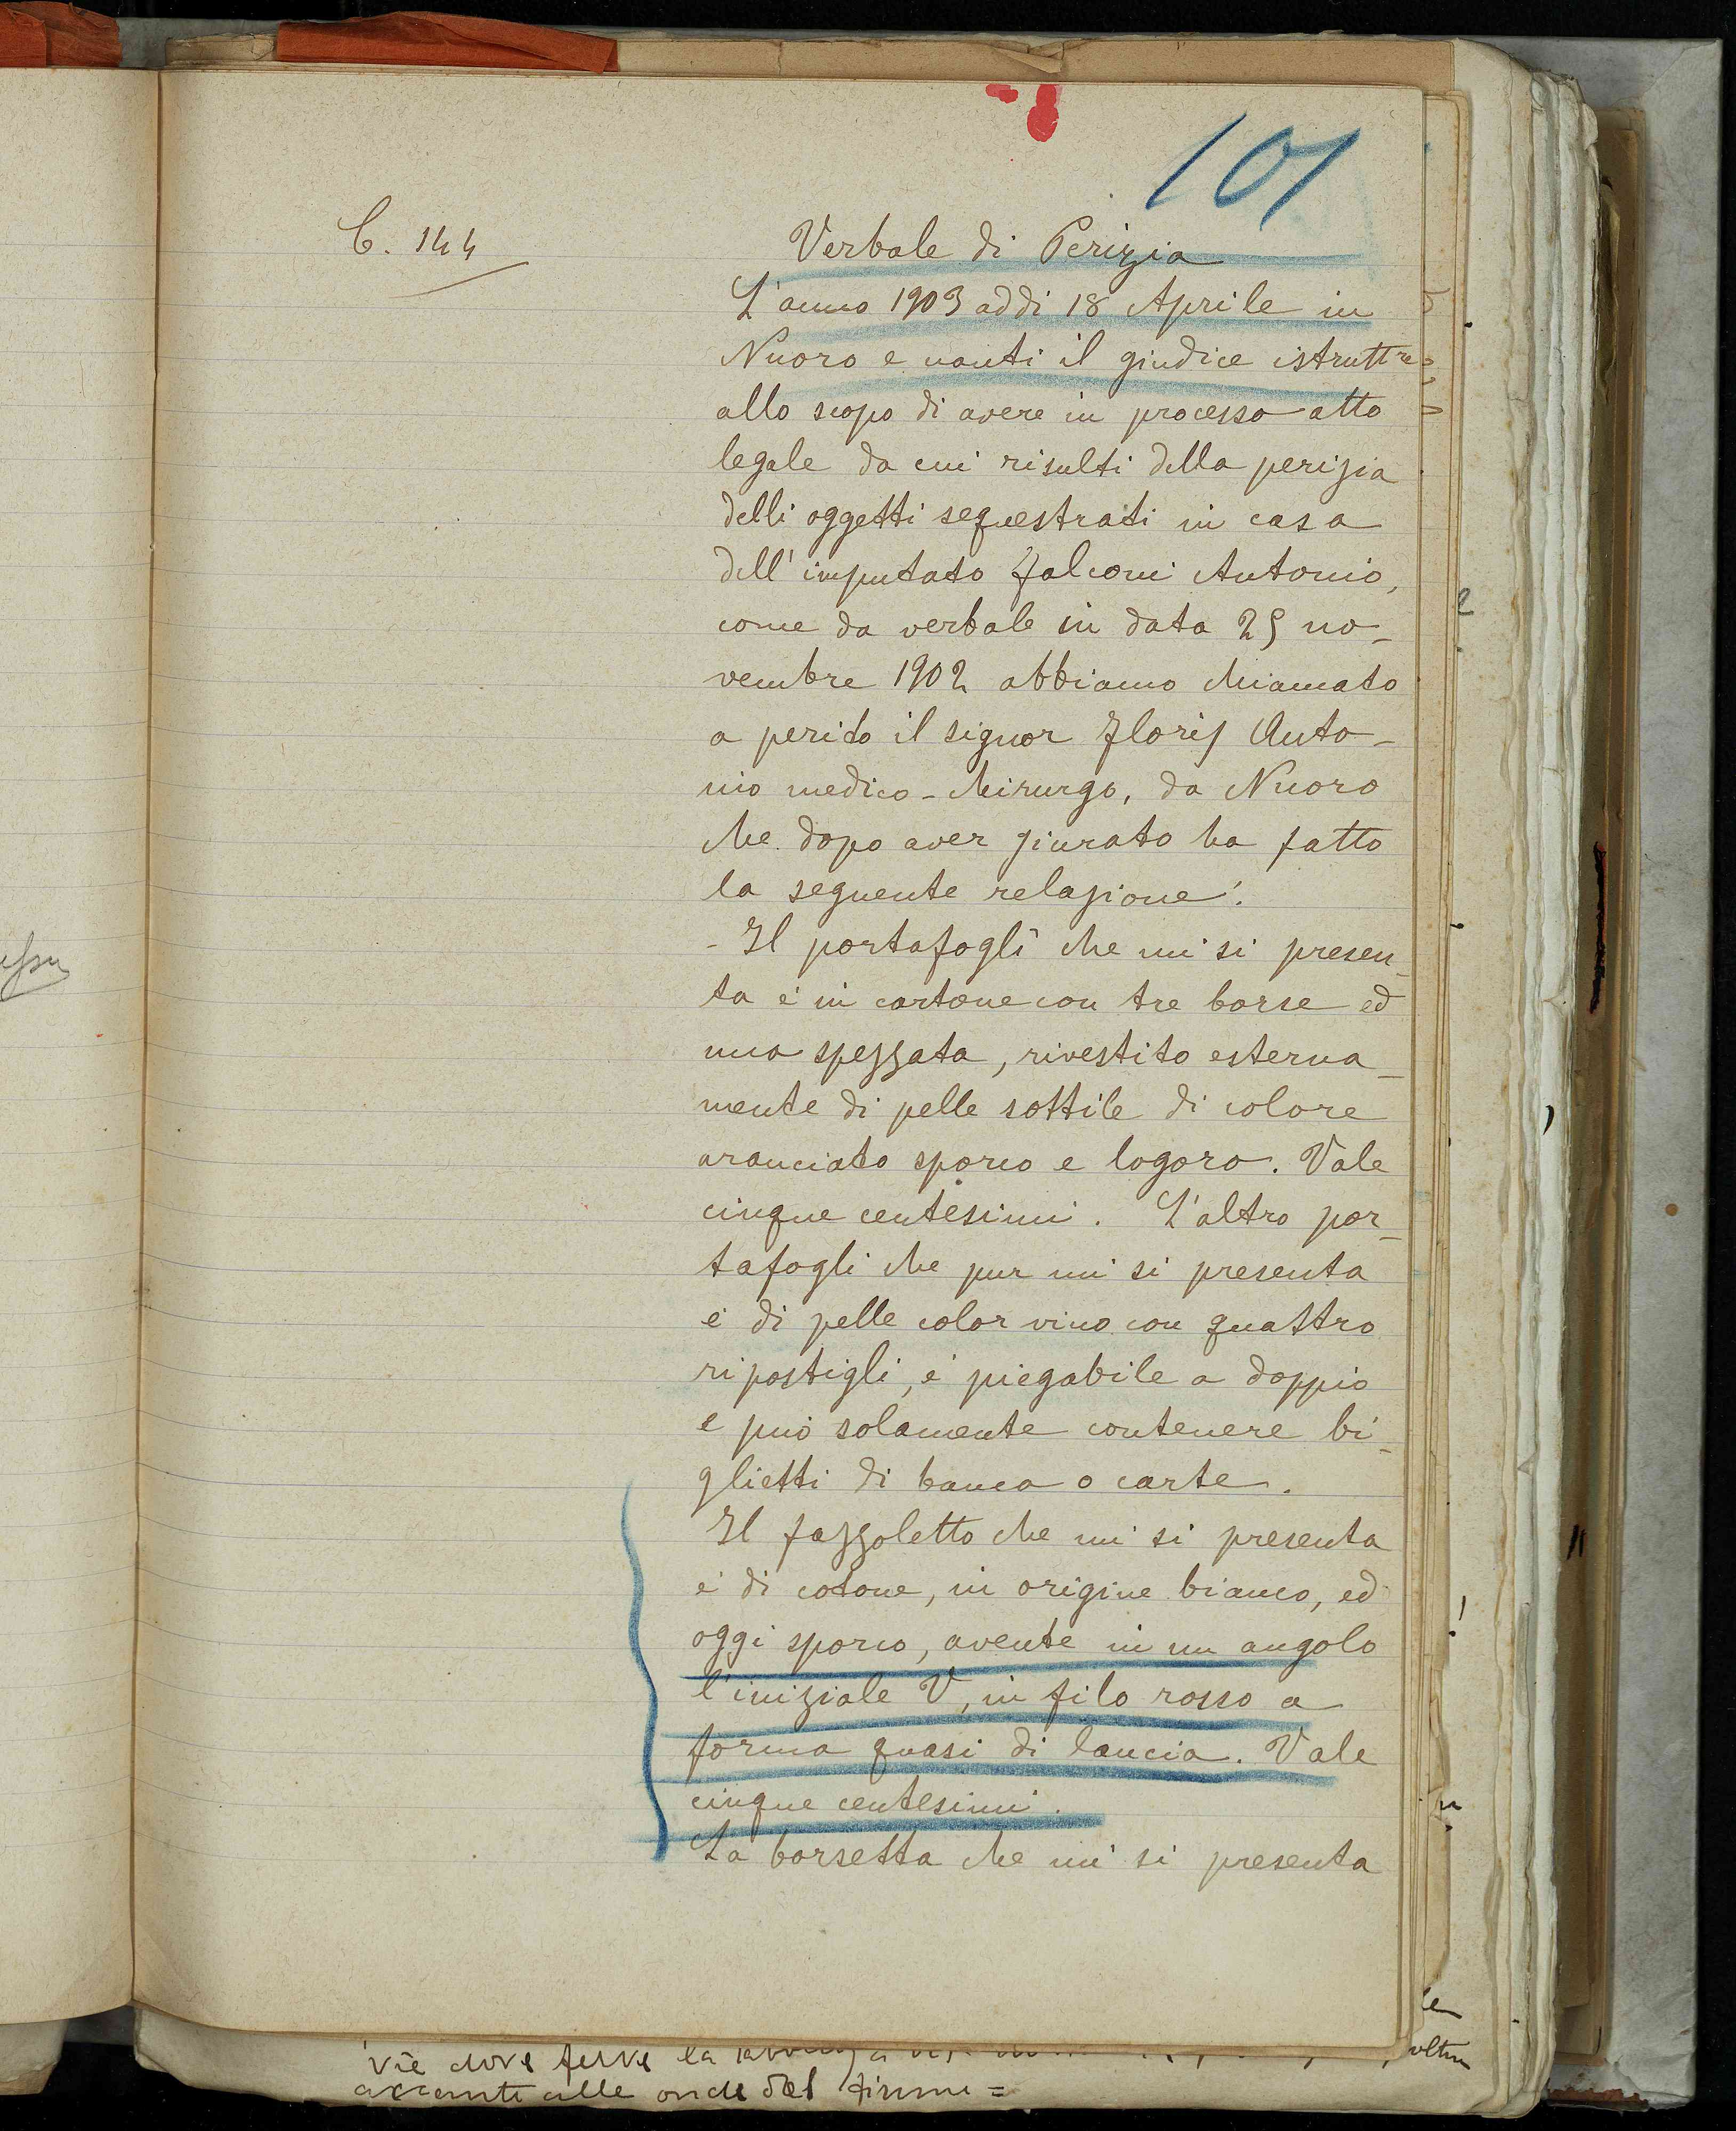 101
C. 144
Verbale di Perizia
L'anno 1903 addi 18 Aprile in
Nuoro e nanti il giudice istruttre
allo scopo di avere in processo atto
legale da cui risulti della perizia
delli oggetti sequestrati in casa
dell'imputato Falconi Antonio,
come da verbale in data 25 no-
vembre 1902 abbiamo chiamato
a perito il signor Floris Anto-
nio medico-chirurgo, da Nuoro
che dopo aver giurato ha fatto
la seguente relazione:
- Il portafogli che mi si presen-
ta è in cartone con tre borse ed
una spezzata, rivestito esterna-
mente di pelle sottile di colore
aranciato sporco e logoro. Vale
cinque centesimi. L'altro por-
tafogli che pur mi si presenta
è di pelle color vino con quattro
ripostigli, è piegabile a doppio
e può solamente contenere bi-
glietti di banca o carte.
Il fazzoletto che mi si presenta
è di cotone, in origine bianco, ed
oggi sporco, avente in un angolo
l'iniziale V, in filo rosso a
forma quasi di lancia. Vale
cinque centesimi.
La borsetta che mi si presenta
vie dove ferve la
alle onde del fiume =